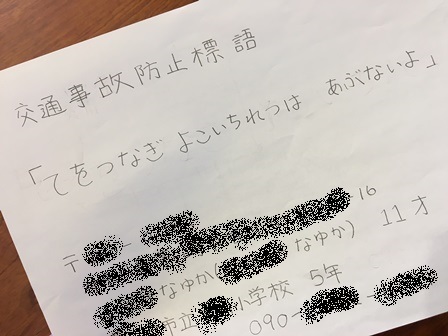 交通事故防止標語
「てをつなぎ よこいちれつは あぶないよ」
〒 -
16
なゆか( なゆか) 11才
市立 小学校 5年
090- -